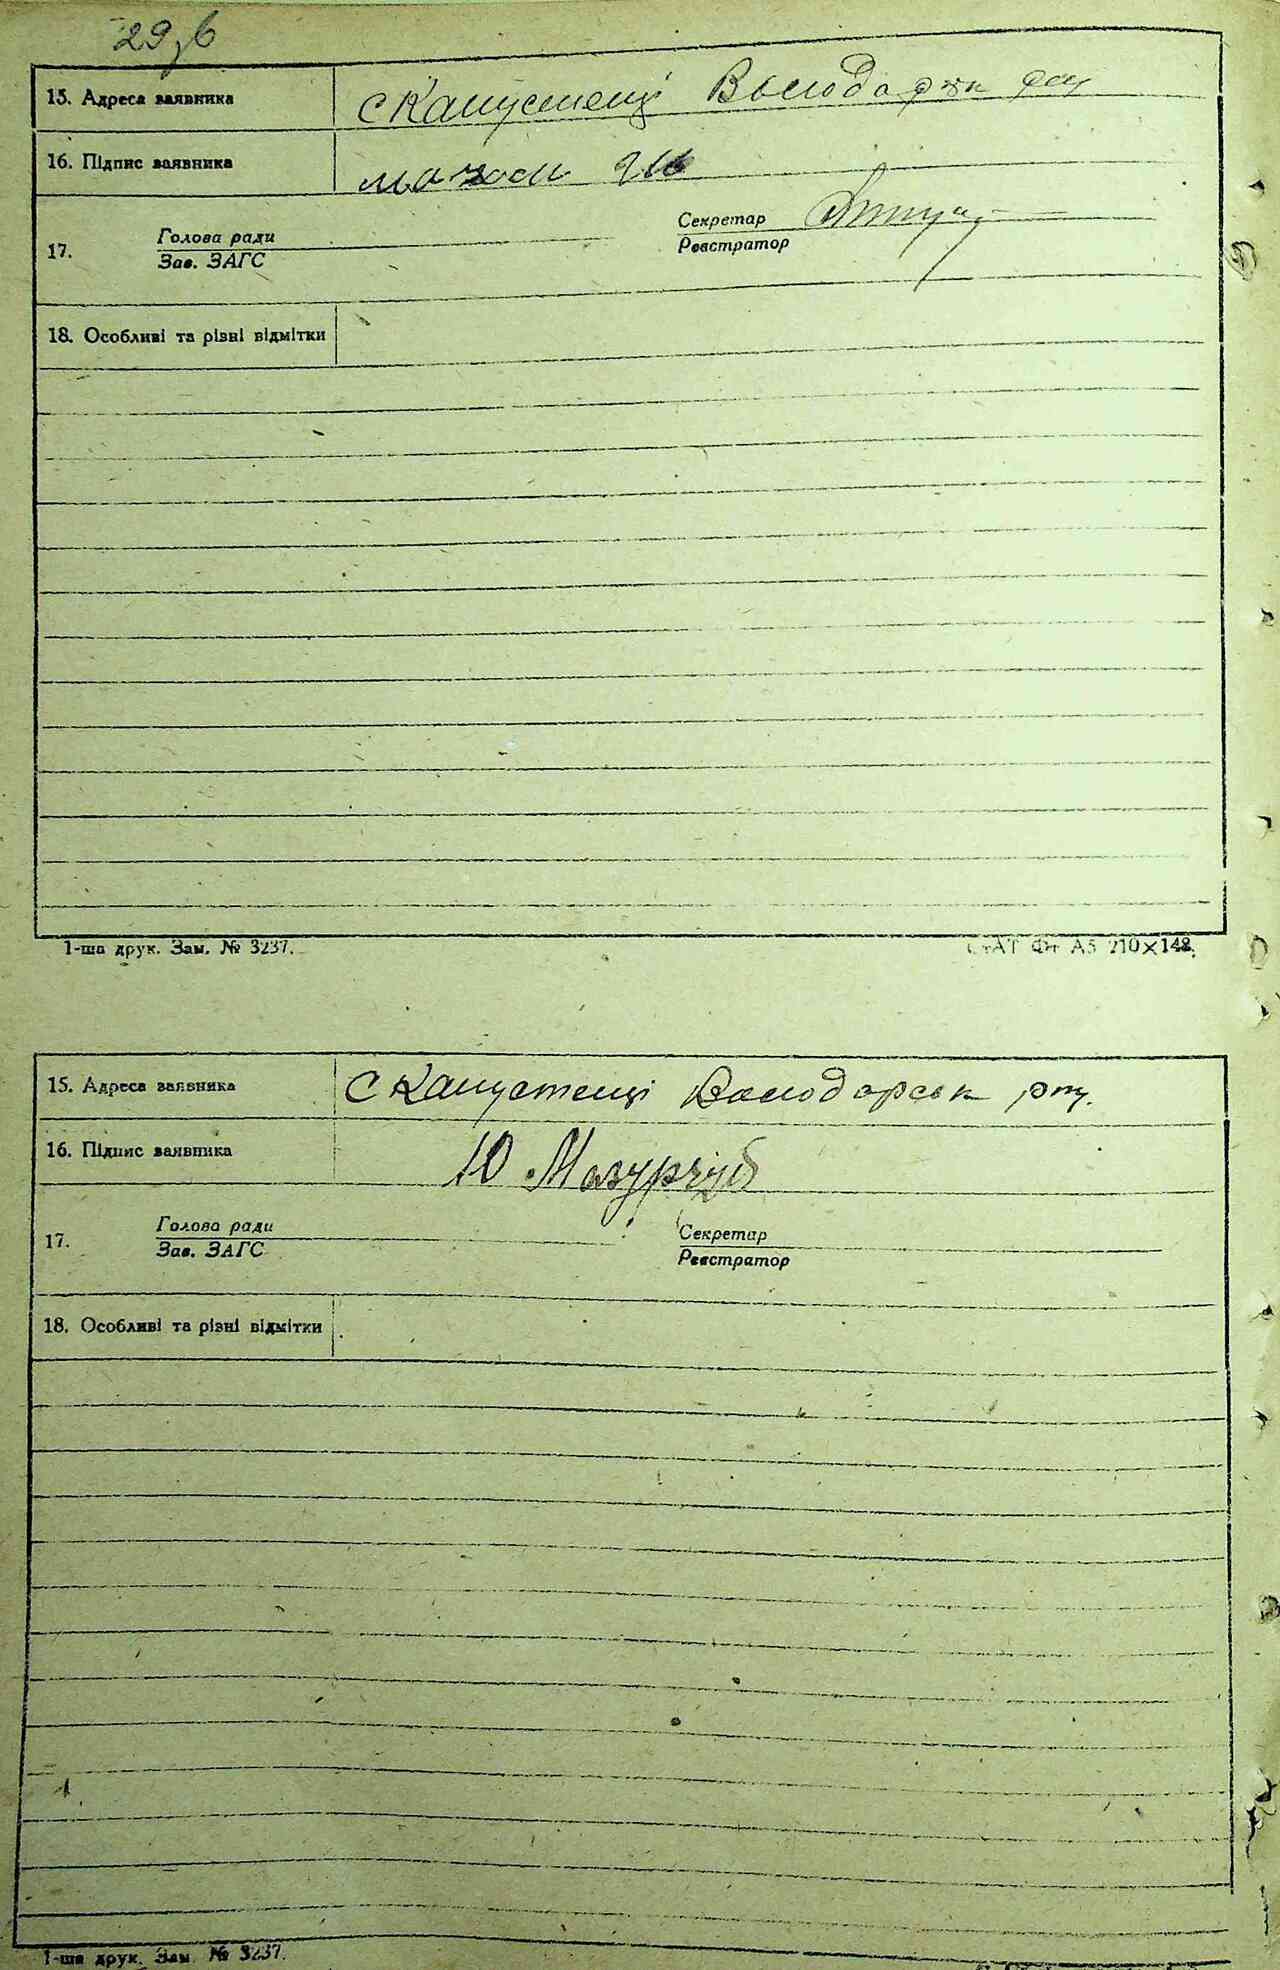 29зв
15. Адреса заявника с Капустенці Володарськ рну
16. Підпис заявника
17. Голова ради Секретар
Зав. ЗАГС Реєстратор
18. Особливі та різні відмітки
1-ша друк. Зам. № 3237. СтАТ Фт А5 210×148.
15. Адреса заявника с Капустенці Володарськ рну.
16. Підпис заявника Ю Мазурчуб
17. Голова ради Секретар
Зав. ЗАГС Реєстратор
18. Особливі та різні відмітки
1-ша друк. Зам. № 3237.